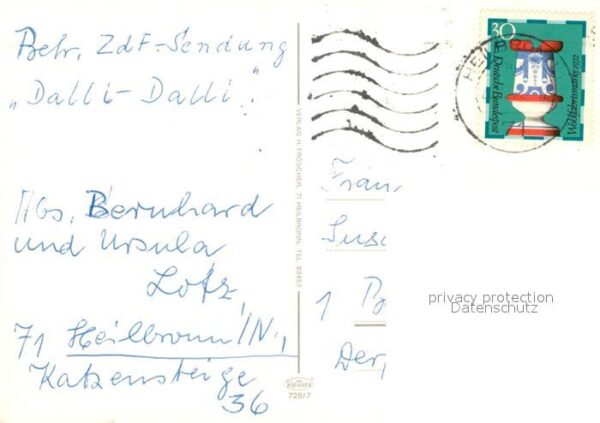 Betr. ZdF-Sendung
"Dalli-Dalli"
Abs. Bernhard
und Ursula
Lotz,
71 Heilbronn/N.,
Katzensteige
36
VERLAG H. FROSCHER, 71 HEILBRONN, TEL. 83457
KRÜGER
728/7
30
Deutsche Bundespost
Wohlfahrtsmarke 1972
HEILB
Susa
1 B
privacy protection
Datenschutz
Der